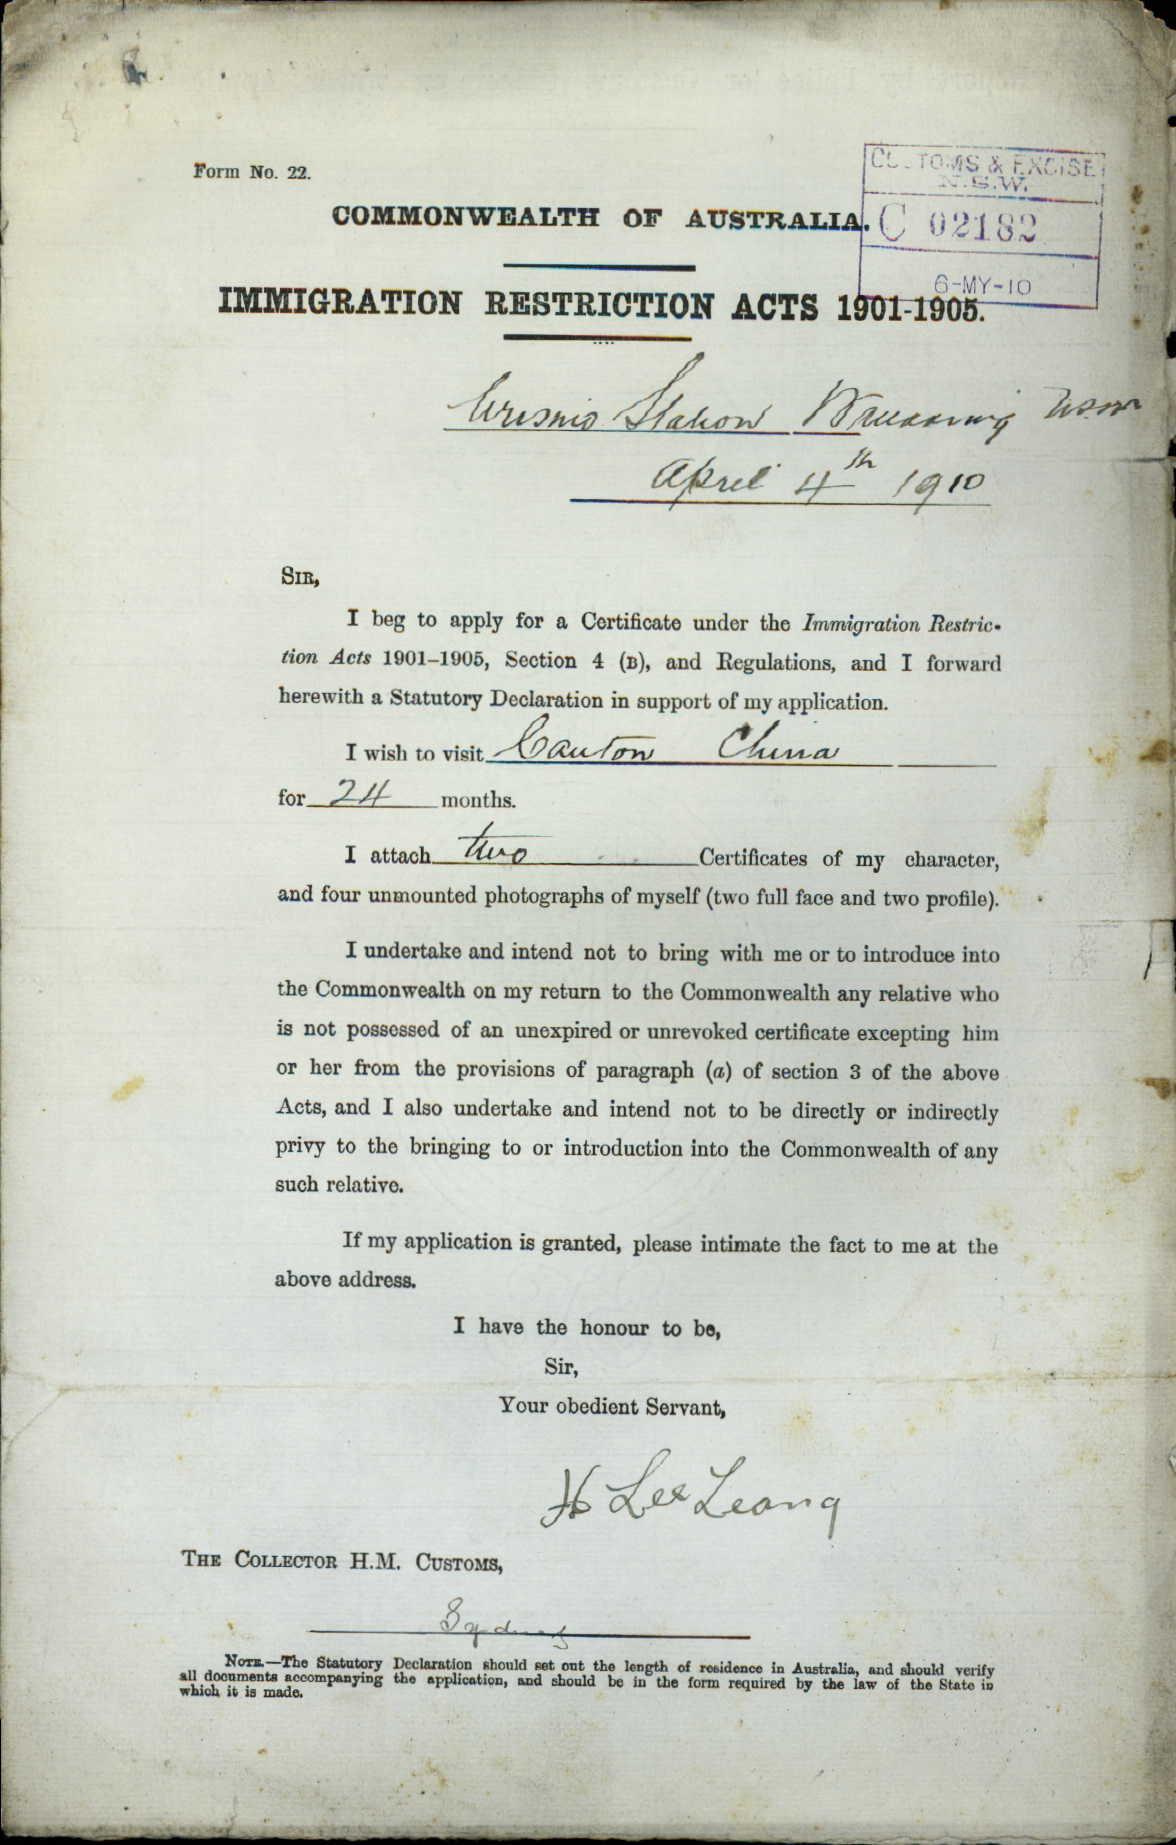 Form No. 22.
CUSTOMS & EXCISE
N.S.W.
C 02182
6-MY-10
COMMONWEALTH OF AUSTRALIA.
IMMIGRATION RESTRICTION ACTS 1901-1905.
Station NSW
April 4th 1910
SIR,
I beg to apply for a Certificate under the Immigration Restric-
tion Acts 1901–1905, Section 4 (B), and Regulations, and I forward
herewith a Statutory Declaration in support of my application.
I wish to visit Canton China
for 24 months.
I attach two Certificates of my character,
and four unmounted photographs of myself (two full face and two profile).
I undertake and intend not to bring with me or to introduce into
the Commonwealth on my return to the Commonwealth any relative who
is not possessed of an unexpired or unrevoked certificate excepting him
or her from the provisions of paragraph (a) of section 3 of the above
Acts, and I also undertake and intend not to be directly or indirectly
privy to the bringing to or introduction into the Commonwealth of any
such relative.
If my application is granted, please intimate the fact to me at the
above address.
I have the honour to be,
Sir,
Your obedient Servant,
H Lee Leong
THE COLLECTOR H.M. CUSTOMS,
Sydney
NOTE.—The Statutory Declaration should set out the length of residence in Australia, and should verify
all documents accompanying the application, and should be in the form required by the law of the State in
which it is made.